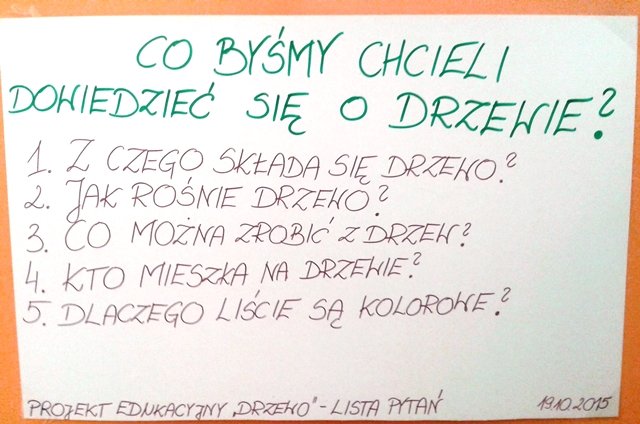 CO BYŚMY CHCIELI
DOWIEDZIEĆ SIĘ O DRZEWIE?
1. Z CZEGO SKŁADA SIĘ DRZEWO?
2. JAK ROŚNIE DRZEWO?
3. CO MOŻNA ZROBIĆ Z DRZEW?
4. KTO MIESZKA NA DRZEWIE?
5. DLACZEGO LIŚCIE SĄ KOLOROWE?
PROJEKT EDUKACYJNY „DRZEWO" - LISTA PYTAŃ 19.10.2015